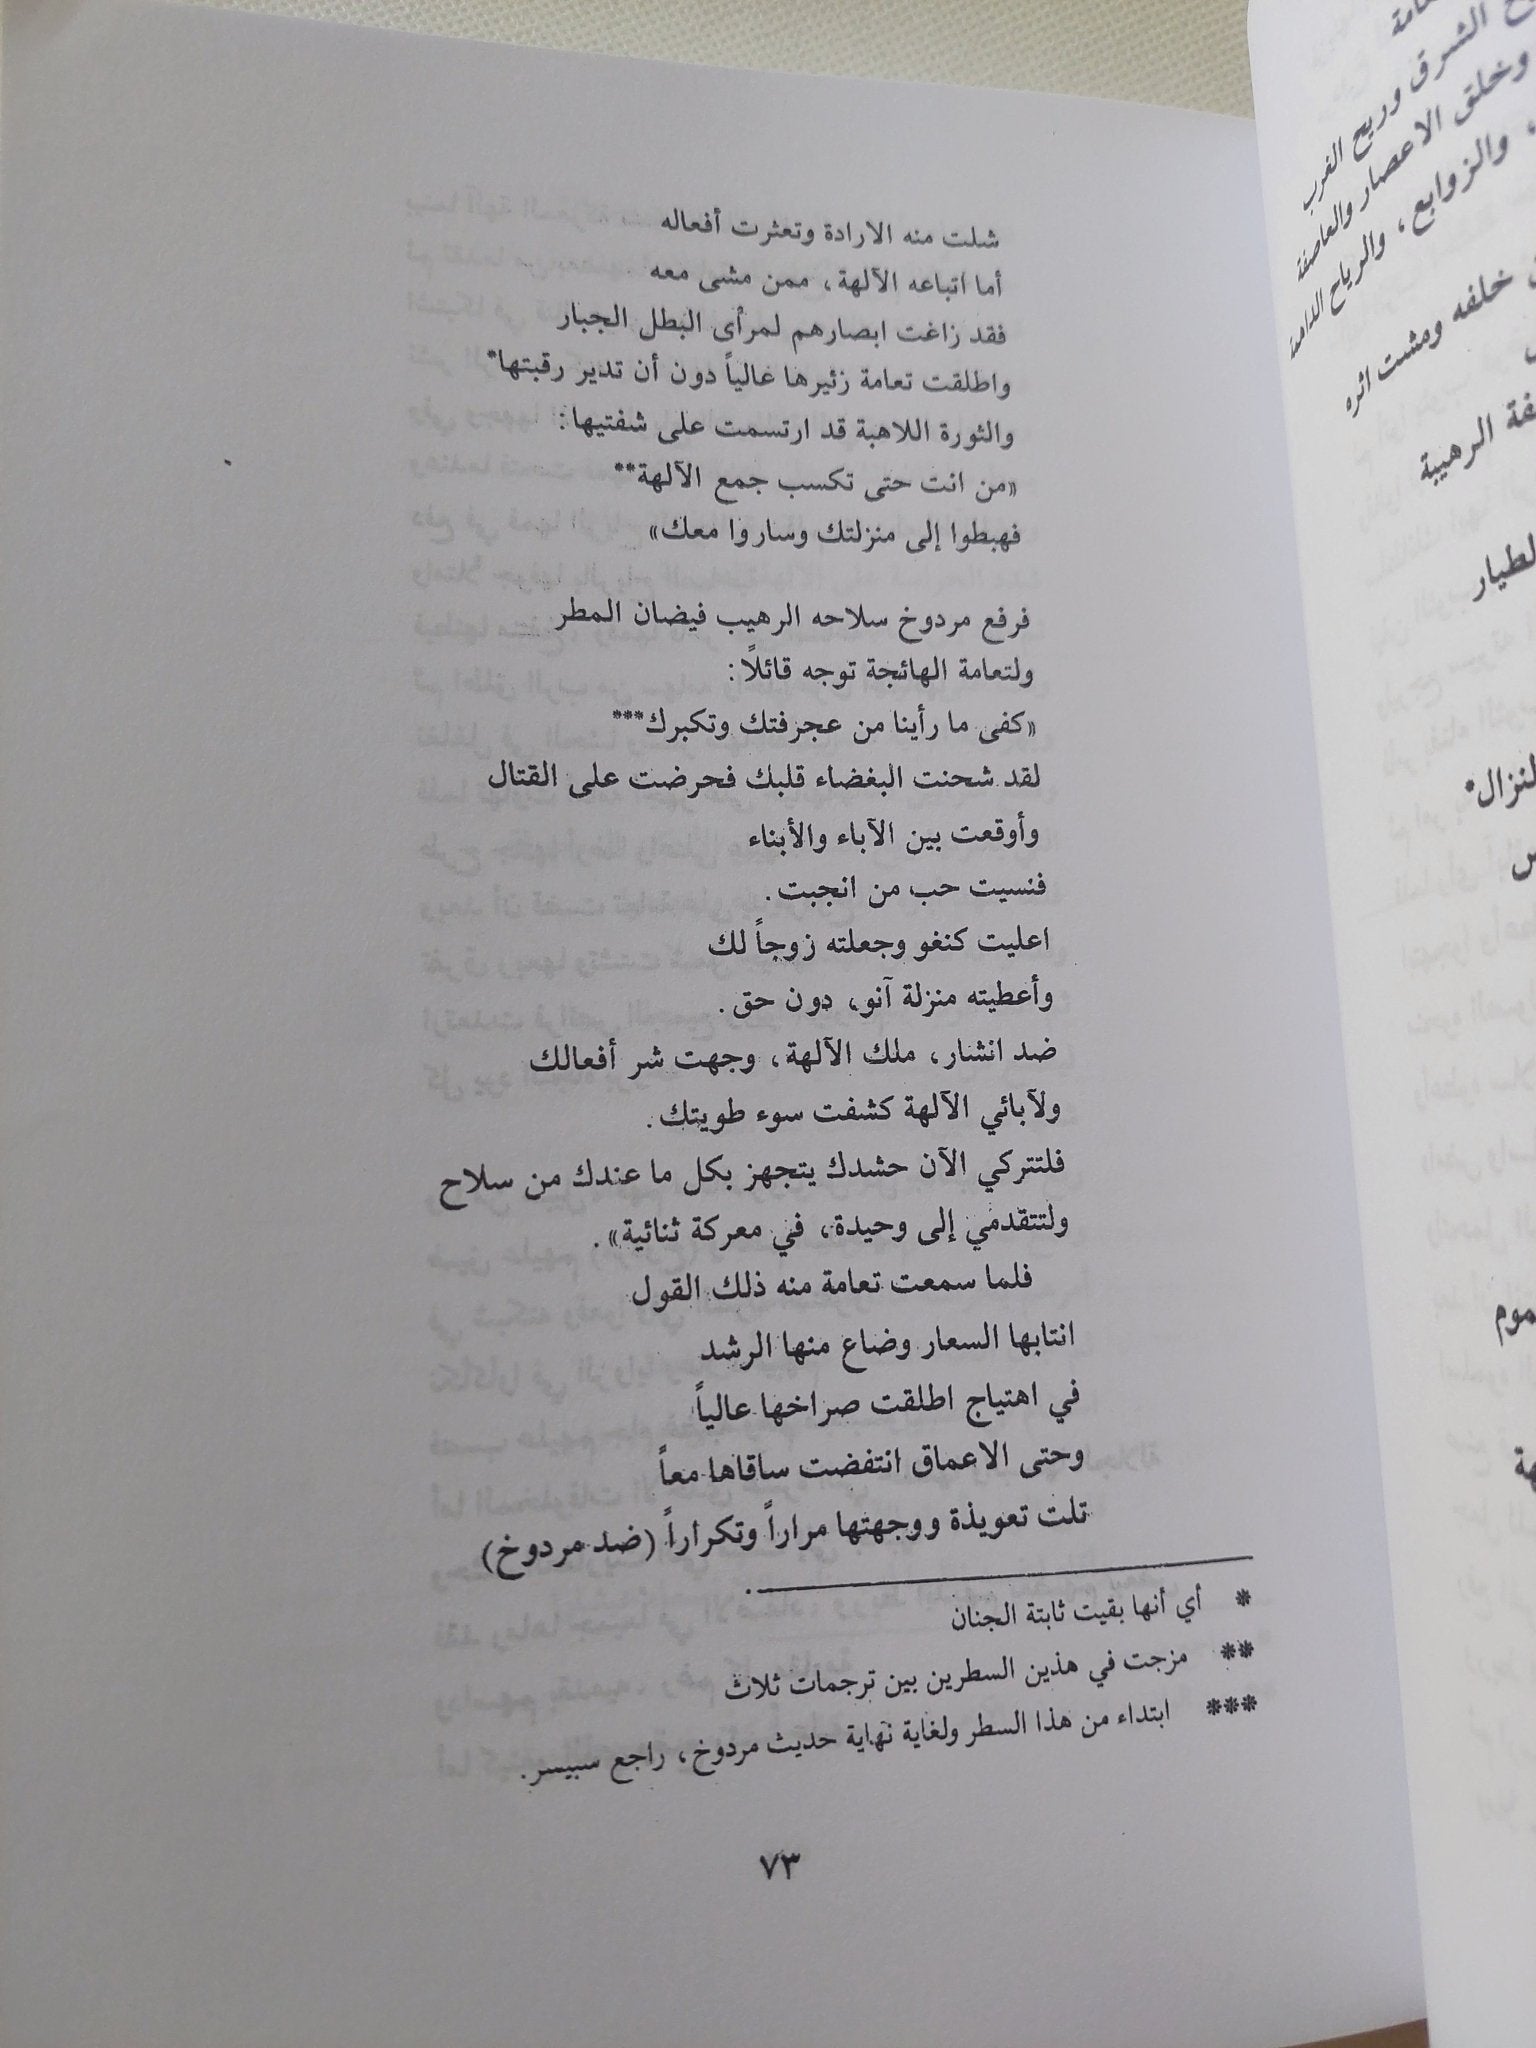 شلت منه الارادة وتعثرت أفعاله
أما اتباعه الآلهة، ممن مشى معه
فقد زاغت ابصارهم لمرأى البطل الجبار
واطلقت تعامة زئيرها عالياً دون أن تدير رقبتها*
والثورة اللاهبة قد ارتسمت على شفتيها:
«من انت حتى تكسب جمع الآلهة**
فهبطوا إلى منزلتك وساروا معك»
فرفع مردوخ سلاحه الرهيب فيضان المطر
ولتعامة الهائجة توجه قائلاً:
«كفى ما رأينا من عجرفتك وتكبرك***
لقد شحنت البغضاء قلبك فحرضت على القتال
وأوقعت بين الآباء والأبناء
فنسيت حب من انجبت.
اعليت كنغو وجعلته زوجاً لك
وأعطيته منزلة آنو، دون حق.
ضد انشار، ملك الآلهة، وجهت شر أفعالك
ولآبائي الآلهة كشفت سوء طويتك.
فلتتركي الآن حشدك يتجهز بكل ما عندك من سلاح
ولتتقدمي إلى وحيدة، في معركة ثنائية».
فلما سمعت تعامة منه ذلك القول
انتابها السعار وضاع منها الرشد
في اهتياج اطلقت صراخها عالياً
وحتى الاعماق انتفضت ساقاها معاً
تلت تعويذة ووجهتها مراراً وتكراراً (ضد مردوخ)
* أي أنها بقيت ثابتة الجنان
** مزجت في هذين السطرين بين ترجمات ثلاث
*** ابتداء من هذا السطر ولغاية نهاية حديث مردوخ، راجع سبيسر.
٧٣
الشرق وريح الغرب
وخلق الاعصار والعاصفة
والزوابع، والرياح الدامعة
خلفه ومشت اثره
الرهيبة